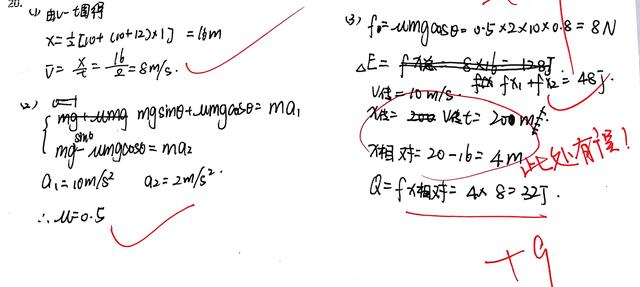 20. (1) 由v-t图得
x = ½[10+(10+12)×1] = 16m
v̄ = x/t = 16/2 = 8m/s.
(2)
mg+umg mgsinθ+umgcosθ = ma₁
mg sinθ - umgcosθ = ma₂
a₁=10m/s² a₂=2m/s².
∴u=0.5
(3) f = umgcosθ = 0.5×2×10×0.8 = 8N
△E = 8×16 = 128J
fx₁+fx₂ = 48J
V传 = 10m/s.
x传 = 200 V传t = 20m
x相对 = 20-16 = 4m
此处有误!
Q = fx相对 = 4×8 = 32J
+9